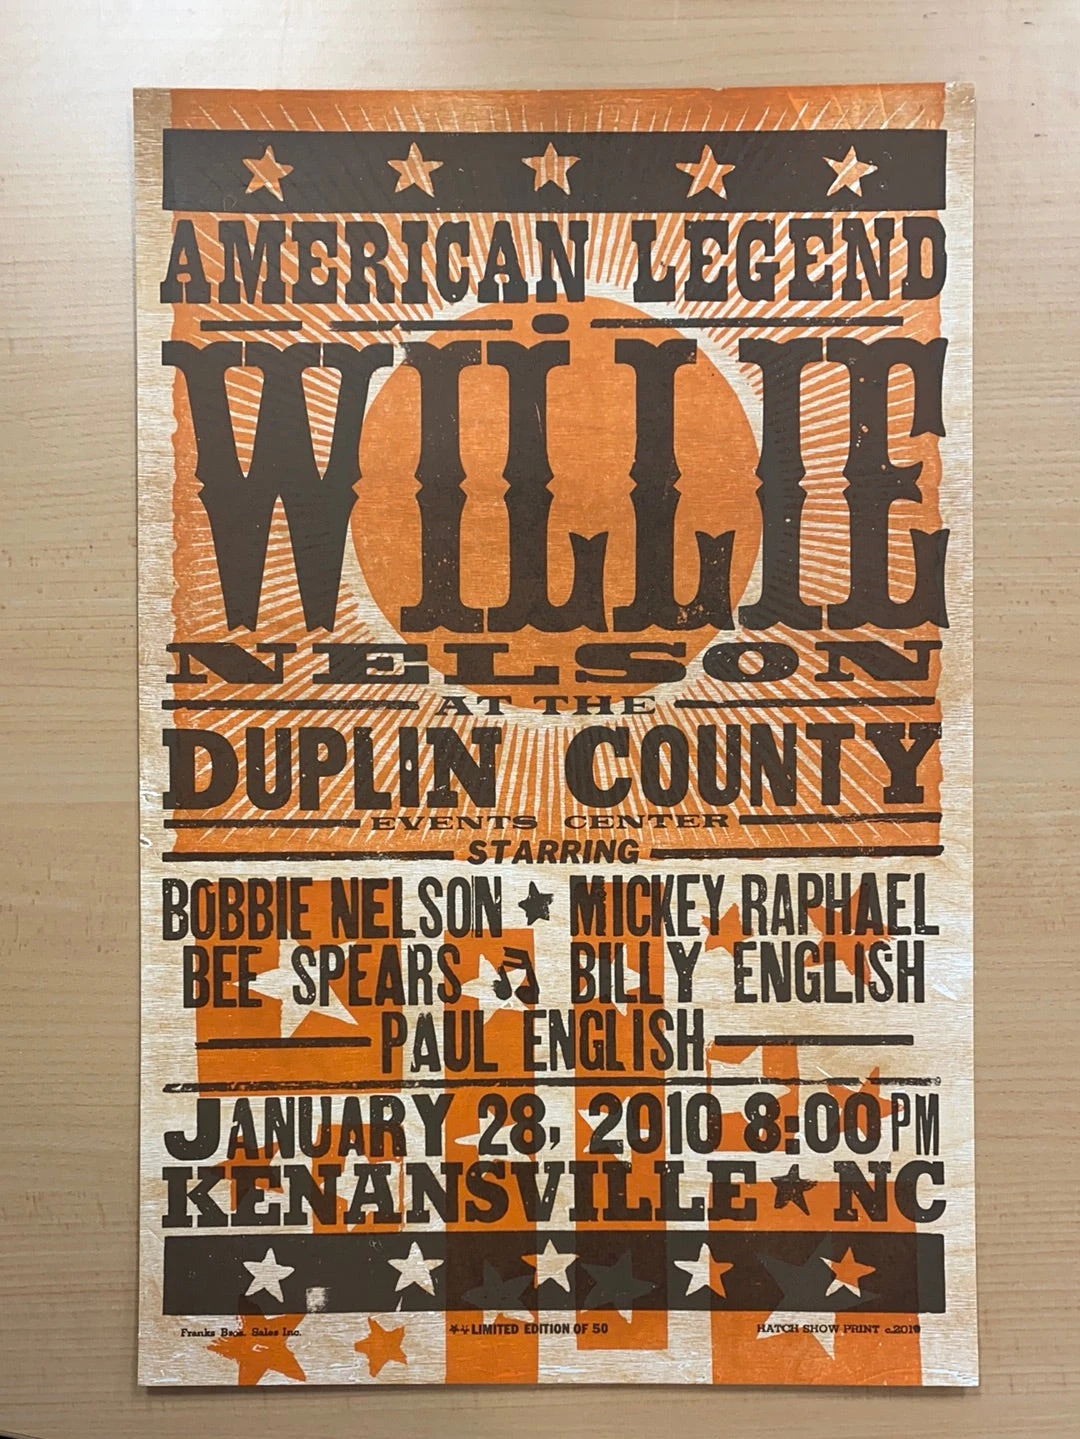 AMERICAN LEGEND
WILLIE
NELSON
AT THE
DUPLIN COUNTY
EVENTS CENTER
STARRING
BOBBIE NELSON ★ MICKEY RAPHAEL
BEE SPEARS ♫ BILLY ENGLISH
PAUL ENGLISH
JANUARY 28, 2010 8:00PM
KENANSVILLE ★ NC
Franks Bros. Sales Inc.
LIMITED EDITION OF 50
HATCH SHOW PRINT c.2010